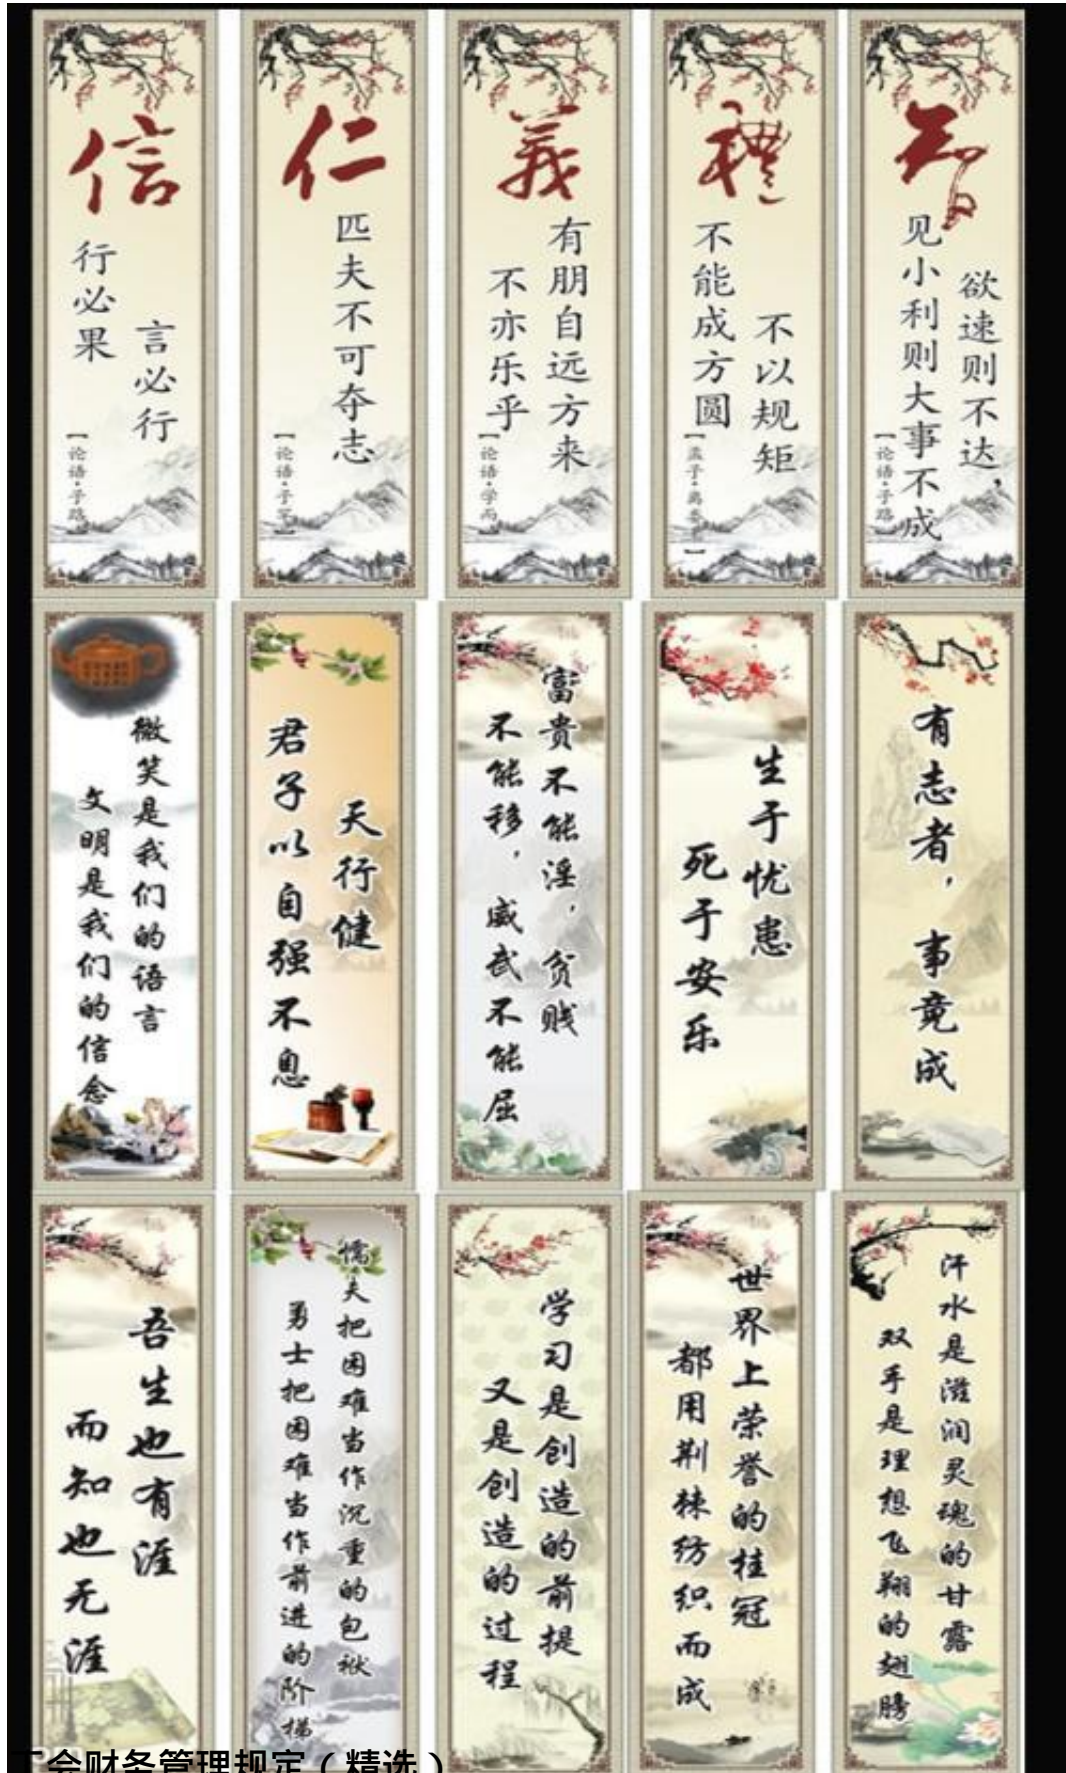 信
言必行
行必果
【论语·子路】
仁
匹夫不可夺志
【论语·子罕】
義
有朋自远方来
不亦乐乎
【论语·学而】
禮
不以规矩
不能成方圆
【孟子·离娄上】
智
欲速则不达，
见小利则大事不成
【论语·子路】
微笑是我们的语言
文明是我们的信念
天行健
君子以自强不息
富贵不能淫，贫贱
不能移，威武不能屈
生于忧患
死于安乐
有志者，事竟成
吾生也有涯
而知也无涯
懦夫把困难当作沉重的包袱
勇士把困难当作前进的阶梯
学习是创造的前提
又是创造的过程
世界上荣誉的桂冠
都用荆棘纺织而成
汗水是滋润灵魂的甘露
双手是理想飞翔的翅膀
工会财务管理规定（精选）